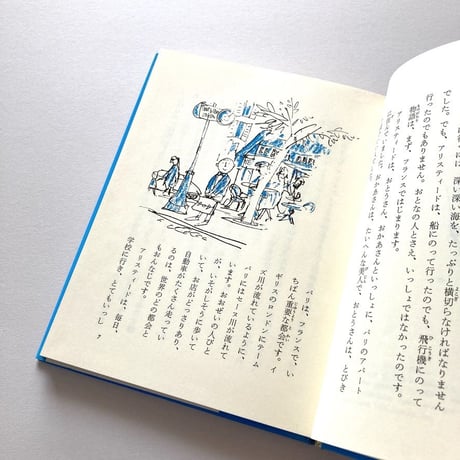 深い深い海を、たっぷりと横切らなければなりません
でした。でも、アリスティードは、船にのって行ったのでも、飛行機にのって
行ったのでもありません。おとなの人とさえ、いっしょではなかったのです。
物語は、まず、フランスではじまります。
アリスティードは、おとうさん、おかあさんといっしょに、パリのアパート
に住んでいました。おかあさんは、たいへんな美人で、おとうさんは、とびき
パリは、フランスで、い
ちばん重要な都会です。イ
ギリスのロンドンにテーム
ズ川が流れているように、
パリにはセーヌ川が流れて
います。おおぜいの人びと
が、いそがしそうに歩いて
いて、お店がどっさりあり、
自動車がたくさん走ってい
るのは、世界のどの都会と
もおんなじです。
アリスティードは、毎日、
学校に行き、とてもいっし
7